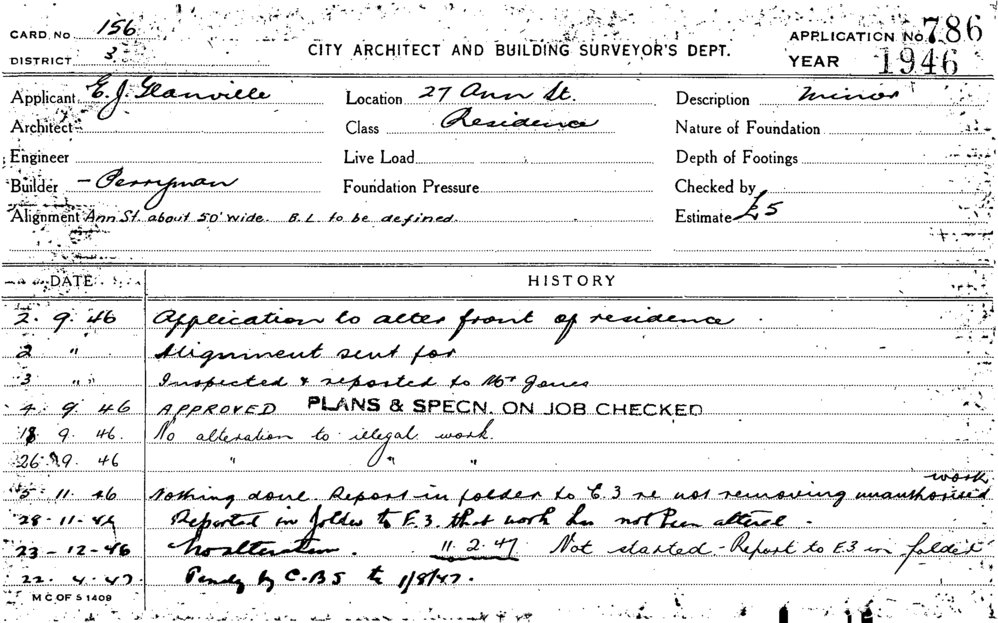 CARD. No 156
DISTRICT 3
CITY ARCHITECT AND BUILDING SURVEYOR'S DEPT.
APPLICATION No. 786
YEAR 1946
Applicant E. J. Glanville Location 27 Ann St. Description Minor
Architect Class Residence Nature of Foundation
Engineer Live Load Depth of Footings
Builder - Perryman Foundation Pressure Checked by
Alignment Ann St. about 50' wide. B.L. to be defined. Estimate £5
DATE HISTORY
2. 9. 46 Application to alter front of residence
2 " Alignment sent for
3 " " Inspected & reported to Mr Jones
4. 9. 46 APPROVED PLANS & SPECN. ON JOB CHECKED
18 9. 46. No alteration to illegal work.
26. 9. 46 " " "
5. 11. 46 Nothing done. Report in folder to E.3 re not removing unauthorised work
28-11-46 Reported in folder to E.3. that work has not been altered.
23-12-46 No alteration. 11.2.47 Not started - Report to E3 in folder
22. 4. 47. by C.B.S to 1/8/47.
M C OF S 1409